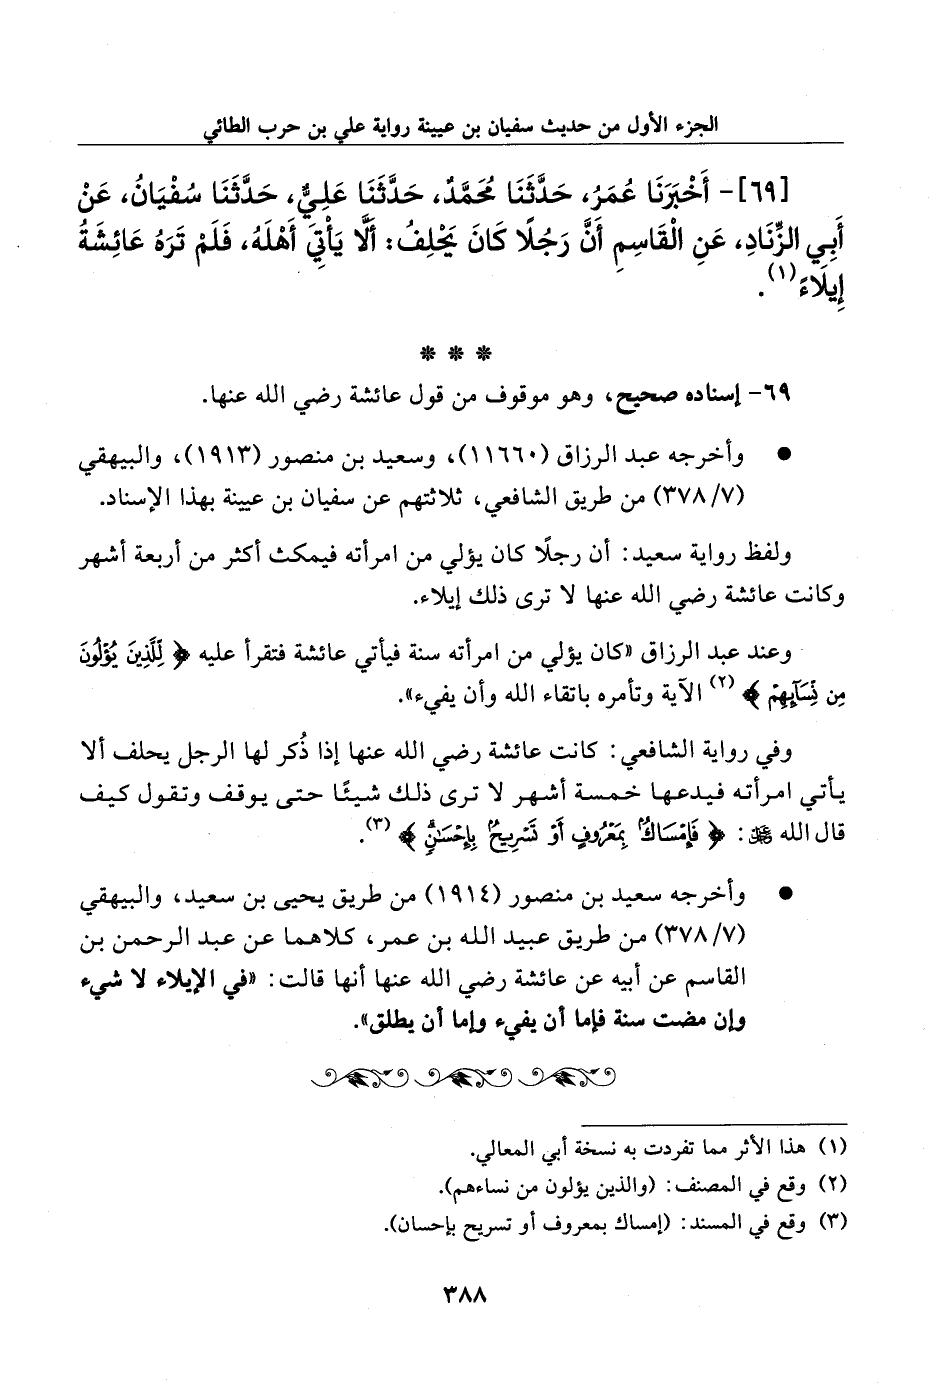 الجزء الأول من حديث سفيان بن عيينة رواية علي بن حرب الطائي
[٦٩]- أَخْبَرَنَا عُمَرُ، حَدَّثَنَا مُحَمَّدٌ، حَدَّثَنَا عَلِيٌّ، حَدَّثَنَا سُفْيَانُ، عَنْ
أَبِي الزِّنَادِ، عَنِ الْقَاسِمِ أَنَّ رَجُلًا كَانَ يَحْلِفُ: أَلَّا يَأْتِيَ أَهْلَهُ، فَلَمْ تَرَهُ عَائِشَةُ
إِيلَاءً(١).
* * *
٦٩- إسناده صحيح، وهو موقوف من قول عائشة رضي الله عنها.
● وأخرجه عبد الرزاق (١١٦٦٠)، وسعيد بن منصور (١٩١٣)، والبيهقي
(٣٧٨/٧) من طريق الشافعي، ثلاثتهم عن سفيان بن عيينة بهذا الإسناد.
ولفظ رواية سعيد: أن رجلًا كان يؤلي من امرأته فيمكث أكثر من أربعة أشهر
وكانت عائشة رضي الله عنها لا ترى ذلك إيلاء.
وعند عبد الرزاق «كان يؤلي من امرأته سنة فيأتي عائشة فتقرأ عليه ﴿ لِّلَّذِينَ يُؤْلُونَ
مِن نِّسَآئِهِمْ ﴾(٢) الآية وتأمره باتقاء الله وأن يفيء».
وفي رواية الشافعي: كانت عائشة رضي الله عنها إذا ذُكر لها الرجل يحلف ألا
يأتي امرأته فيدعها خمسة أشهر لا ترى ذلك شيئًا حتى يوقف وتقول كيف
قال الله ﷻ: ﴿ فَإِمْسَاكٌۢ بِمَعْرُوفٍ أَوْ تَسْرِيحٌۢ بِإِحْسَٰنٍ ﴾(٣).
● وأخرجه سعيد بن منصور (١٩١٤) من طريق يحيى بن سعيد، والبيهقي
(٣٧٨/٧) من طريق عبيد الله بن عمر، كلاهما عن عبد الرحمن بن
القاسم عن أبيه عن عائشة رضي الله عنها أنها قالت: «في الإيلاء لا شيء
وإن مضت سنة فإما أن يفيء وإما أن يطلق».
(١) هذا الأثر مما تفردت به نسخة أبي المعالي.
(٢) وقع في المصنف: (والذين يؤلون من نساءهم).
(٣) وقع في المسند: (إمساك بمعروف أو تسريح بإحسان).
٣٨٨